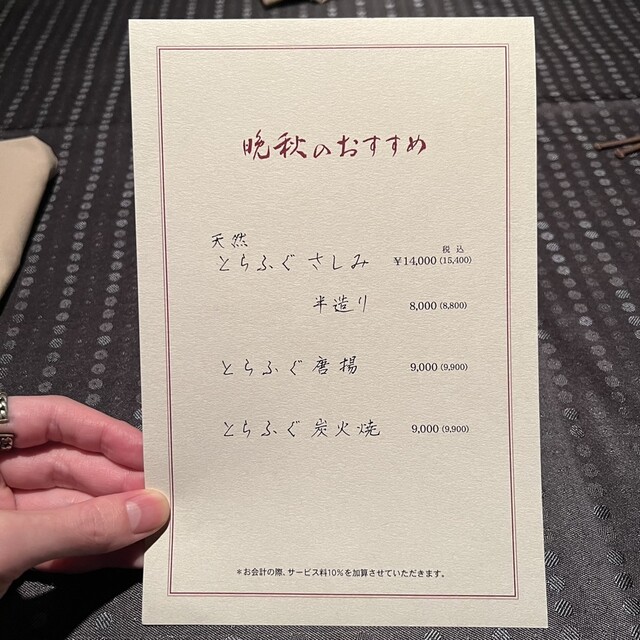 晩秋のおすすめ
天然
税込
とらふぐ さしみ ¥14,000 (15,400)
半造り 8,000 (8,800)
とらふぐ 唐揚 9,000 (9,900)
とらふぐ 炭火焼 9,000 (9,900)
*お会計の際、サービス料10%を加算させていただきます。